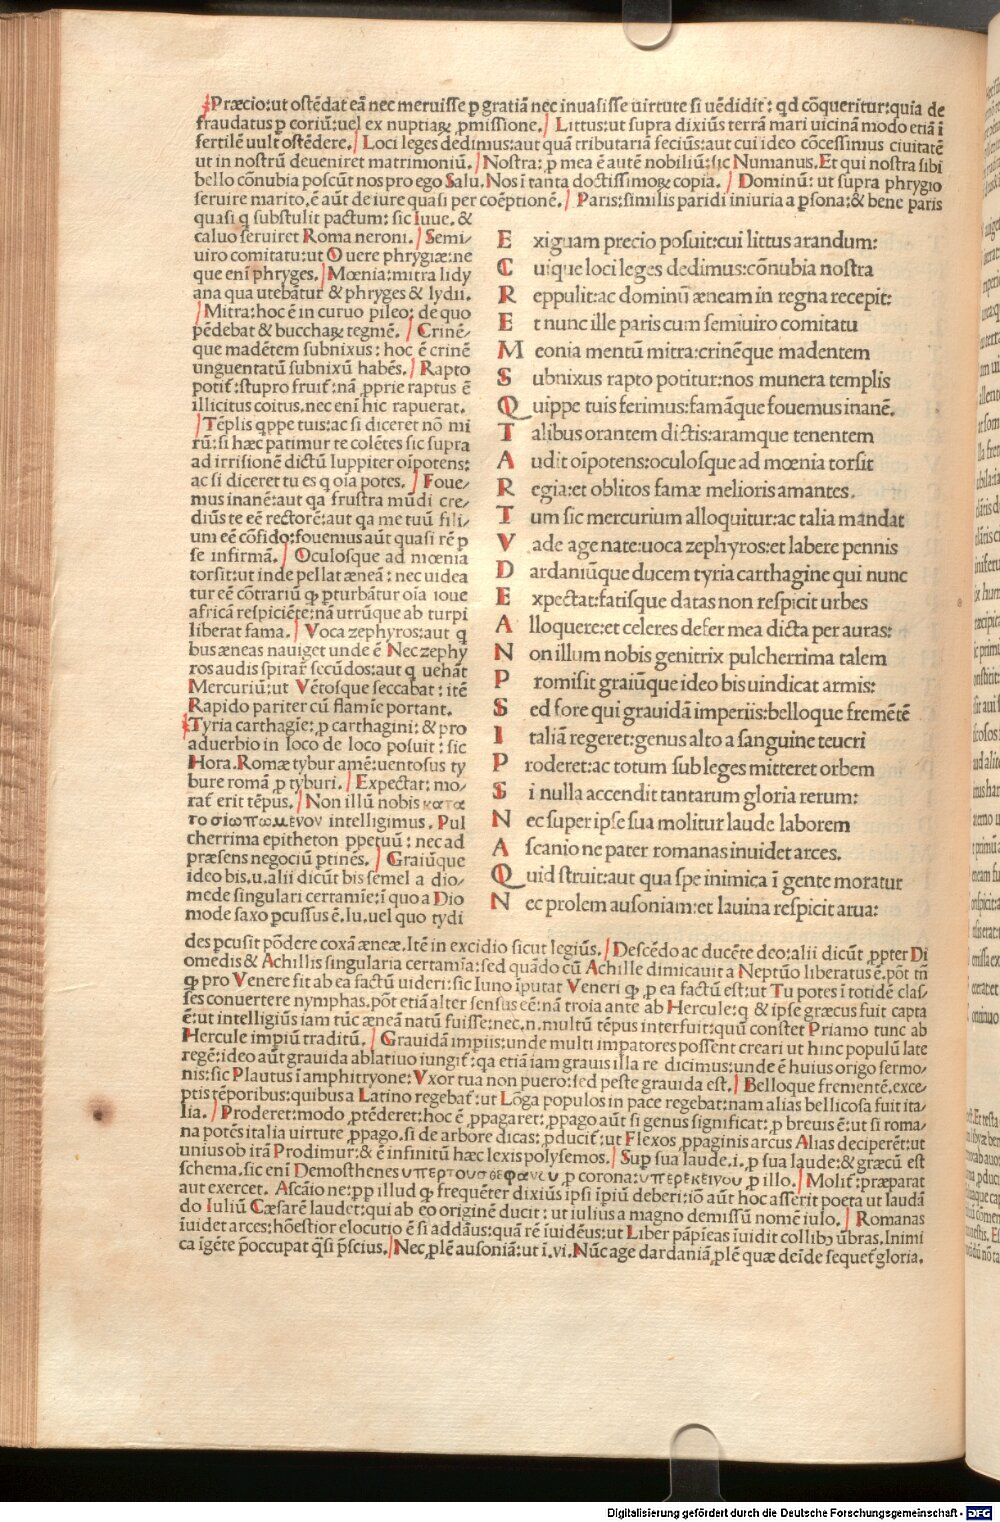 Præcio:ut ostēdat eā nec meruisse ꝑ gratiā nec inuasisse uirtute si uēdidit: qd cōqueritur:quia de
fraudatus ꝑ coriū:uel ex nuptiaꝝ ꝓmissione. Littus:ut supra dixiūs terrā mari uicinā modo etiā ī
fertilē uult ostēdere. Loci leges dedimus:aut quā tributariā feciūs:aut cui ideo cōcessimus ciuitatē
ut in nostrū deueniret matrimoniū. Nostra: ꝓ mea ē autē nobiliū:sic Numanus. Et qui nostra sibi
bello cōnubia poscūt nos pro ego Salu. Nos ī tanta doctissimoꝝ copia. Dominū: ut supra phrygio
seruire marito.ē aūt de iure quasi per coēptionē. Paris:similis paridi iniuria a ꝑsona:& bene paris
quasi q substulit pactum: sic Iuue. &
caluo seruiret Roma neroni. Semi/
uiro comitatu:ut O uere phrygiæ:ne
que enī phryges. Mœnia:mitra lidy
ana qua utebātur & phryges & lydii.
Mitra:hoc ē in curuo pileo: de quo
pēdebat & bucchaꝝ tegmē. Crinē/
que madētem subnixus: hoc ē crinē
unguentatū subnixū habēs. Rapto
potit̄:stupro fruit̄:nā ꝓprie raptus ē
illicitus coitus.nec enī hic rapuerat.
Tēplis qppe tuis:ac si diceret nō mi
rū:si hæc patimur te colētes sic supra
ad irrisionē dictū Iuppiter oīpotens:
ac si diceret tu es q oīa potes. Foue/
mus inanē:aut qa frustra mūdi cre/
dius te eē rectorē:aut qa me tuū fili/
um eē cōfido:fouemus aūt quasi rē ꝑ
se infirmā. Oculosque ad mœnia
torsit:ut inde pellat æneā: nec uidea
tur eē cōtrariū ꝙ ꝑturbātur oīa ioue
africā respiciēte:nā utrūque ab turpi
liberat fama. Voca zephyros:aut q
bus æneas nauiget unde ē Nec zephy
ros audis spirar̄ secūdos:aut q uehāt
Mercuriū:ut Vētosque seccabat: itē
Rapido pariter cū flamīe portant.
Tyria carthagīe: ꝓ carthagini: & pro
aduerbio in loco de loco posuit: sic
Hora. Romæ tybur amē:uentosus ty
bure romā ꝓ tyburi. Expectat: mo/
rat̄ erit tēpus. Non illū nobis κατα
το σιωπωμενον intelligimus. Pul
cherrima epitheton ꝑpetuū: nec ad
præsens negociū ꝑtinēs. Graiūque
ideo bis.u.alii dicūt bis semel a dio/
mede singulari certamīe:ī quo a Dio
mode saxo ꝑcussus ē.Iu.uel quo tydi
E xiguam precio posuit:cui littus arandum:
C uique loci leges dedimus:cōnubia nostra
R eppulit:ac dominū æneam in regna recepit:
E t nunc ille paris cum semiuiro comitatu
M eonia mentū mitra:crinēque madentem
S ubnixus rapto potitur:nos munera templis
Q uippe tuis ferimus:famāque fouemus inanē.
T alibus orantem dictis:aramque tenentem
A udit oīpotens:oculosque ad mœnia torsit
R egia:et oblitos famæ melioris amantes.
T um sic mercurium alloquitur:ac talia mandat
V ade age nate:uoca zephyros:et labere pennis
D ardaniūque ducem tyria carthagine qui nunc
E xpectat:fatisque datas non respicit urbes
A lloquere:et celeres defer mea dicta per auras:
N on illum nobis genitrix pulcherrima talem
P romisit graiūque ideo bis uindicat armis:
S ed fore qui grauidā imperiis:belloque fremētē
I taliā regeret:genus alto a sanguine teucri
P roderet:ac totum sub leges mitteret orbem
S i nulla accendit tantarum gloria rerum:
N ec super ipse sua molitur laude laborem
A scanio ne pater romanas inuidet arces.
Q uid struit:aut qua spe inimica ī gente moratur
N ec prolem ausoniam:et lauina respicit arua:
des ꝑcusit pōdere coxā æneæ. Itē in excidio sicut legiūs. Descēdo ac ducēte deo:alii dicūt ꝓpter Di
omedis & Achillis singularia certamīa:sed quādo cū Achille dimicauit a Neptūo liberatus ē.pōt tn̄
ꝙ pro Venere fit ab ea factū uideri:sic Iuno īputat Veneri ꝙ ꝓ ea factū est:ut Tu potes ī totidē clas/
ses conuertere nymphas.pōt etiā alter sensus eē:nā troia ante ab Hercule:q & ipse græcus fuit capta
ē:ut intelligiūs iam tūc æneā natū fuisse:nec.n.multū tēpus interfuit:quū constet Priamo tunc ab
Hercule impiū traditū. Grauidā impiis:unde multi impatores possent creari ut hinc populū late
regē:ideo aūt grauida ablatiuo iungit̄:qa etiā iam grauis illa re dicimus:unde ē huius origo sermo/
nis:sic Plautus ī amphitryone: Vxor tua non puero:sed peste grauida est. Belloque frementē.exce/
ptis tēporibus:quibus a Latino regebat̄:ut Lōga populos in pace regebat:nam alias bellicosa fuit ita/
lia. Proderet:modo ꝓtēderet:hoc ē ꝓpagaret:ꝓpago aūt si genus significat: ꝓ breuis ē:ut si roma/
na potēs italia uirtute ꝓpago.si de arbore dicas: ꝓducit̄:ut Flexos ꝓpaginis arcus Alias deciperēt:ut
unius ob irā Prodimur:& ē infinitū hæc lexis polysemos. Suꝑ sua laude.i. ꝓ sua laude:& græcū est
schema.sic enī Demosthenes υπερτουστεφανου ꝓ corona:υπερεκεινου ꝓ illo. Molit̄: præparat
aut exercet. Ascāio ne:ꝓꝑ illud ꝙ frequēter dixiūs ipsi īpiū deberi:iō aūt hoc asserit poeta ut laudā
do Iuliū Cæsarē laudet:qui ab eo originē ducit: ut iulius a magno demissū nomē iulo. Romanas
īuidet arces:hōestior elocutio ē si addāus:quā rē īuidēus:ut Liber pāpīeas īuidit collibꝫ ūbras. Inimi
ca īgēte p̄occupat q̄si p̄scius. Nec ꝓlē ausoniā:ut ī.vi. Nūc age dardaniā ꝓlē quæ deīde sequet̄ gloria.
Digitalisierung gefördert durch die Deutsche Forschungsgemeinschaft - DFG